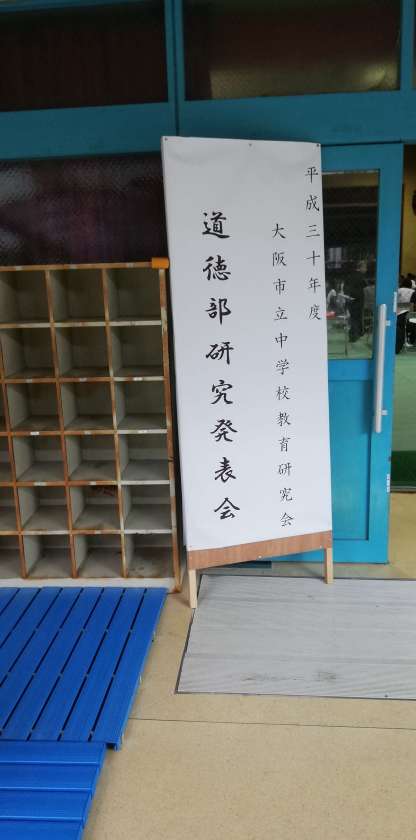 平成三十年度
大阪市立中学校教育研究会
道徳部研究発表会